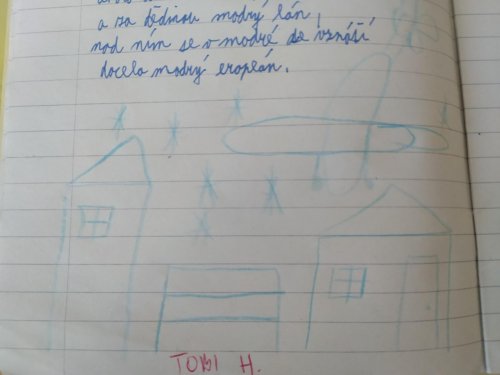 a za dědinou modrý lán,
nad ním se v modré de vznáší
docela modrý eroplán.
TOBI H.